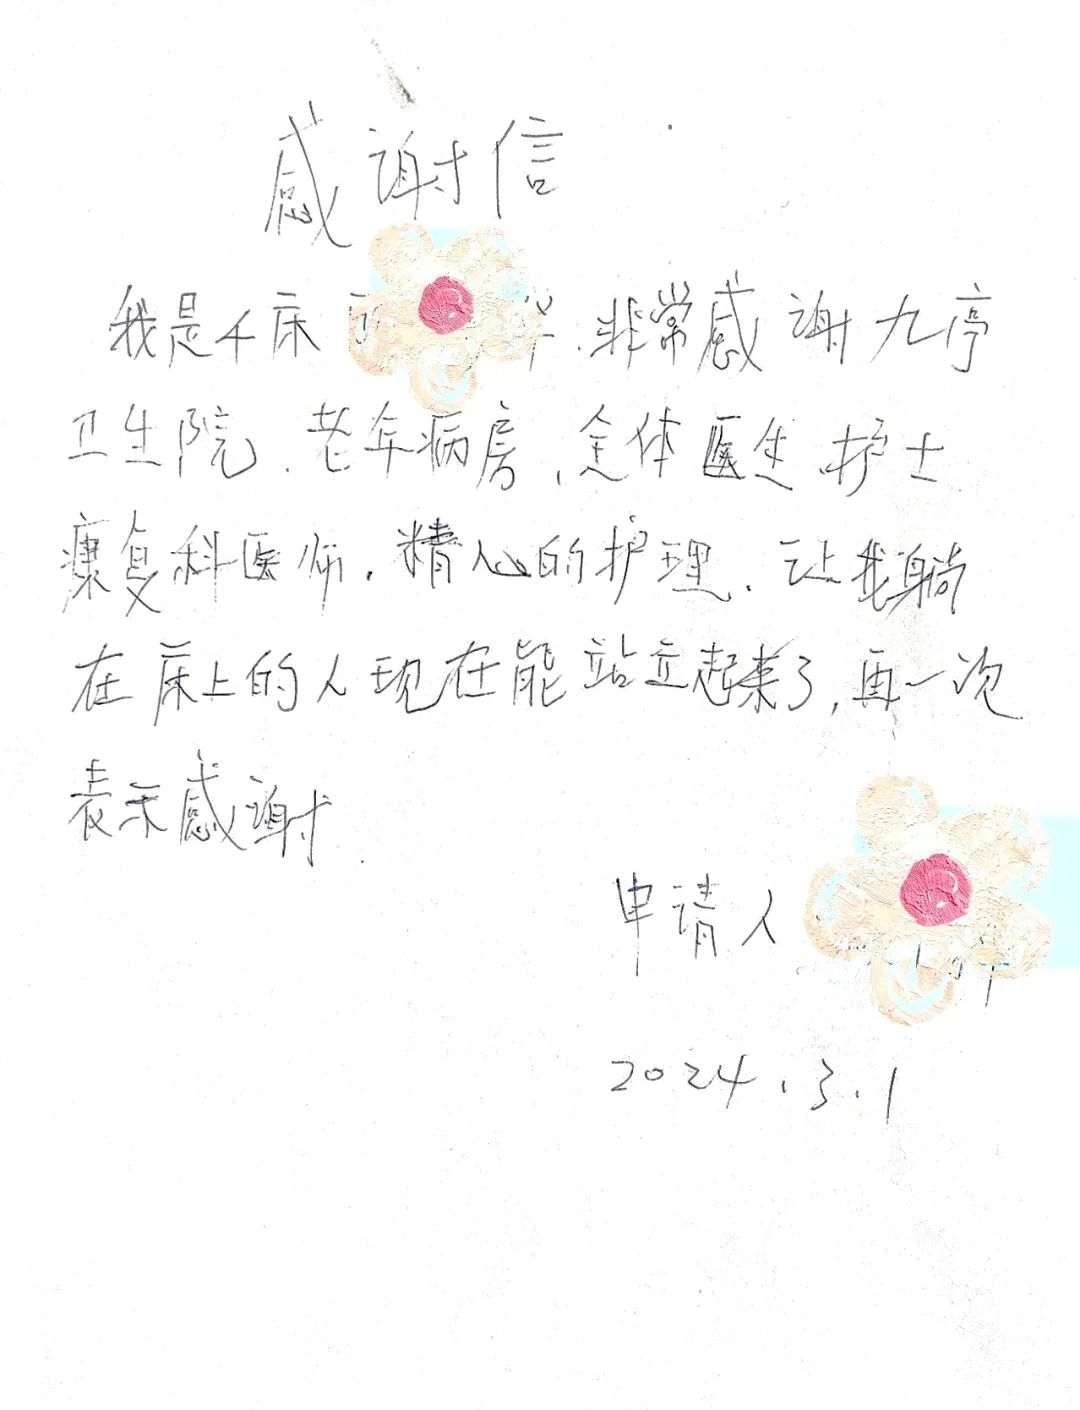 感谢信
我是4床 非常感谢九亭
卫生院、老年病房、全体医生护士
康复科医师,精心的护理,让我躺
在床上的人现在能站立起来了,再一次
表示感谢
申请人
2024.3.1